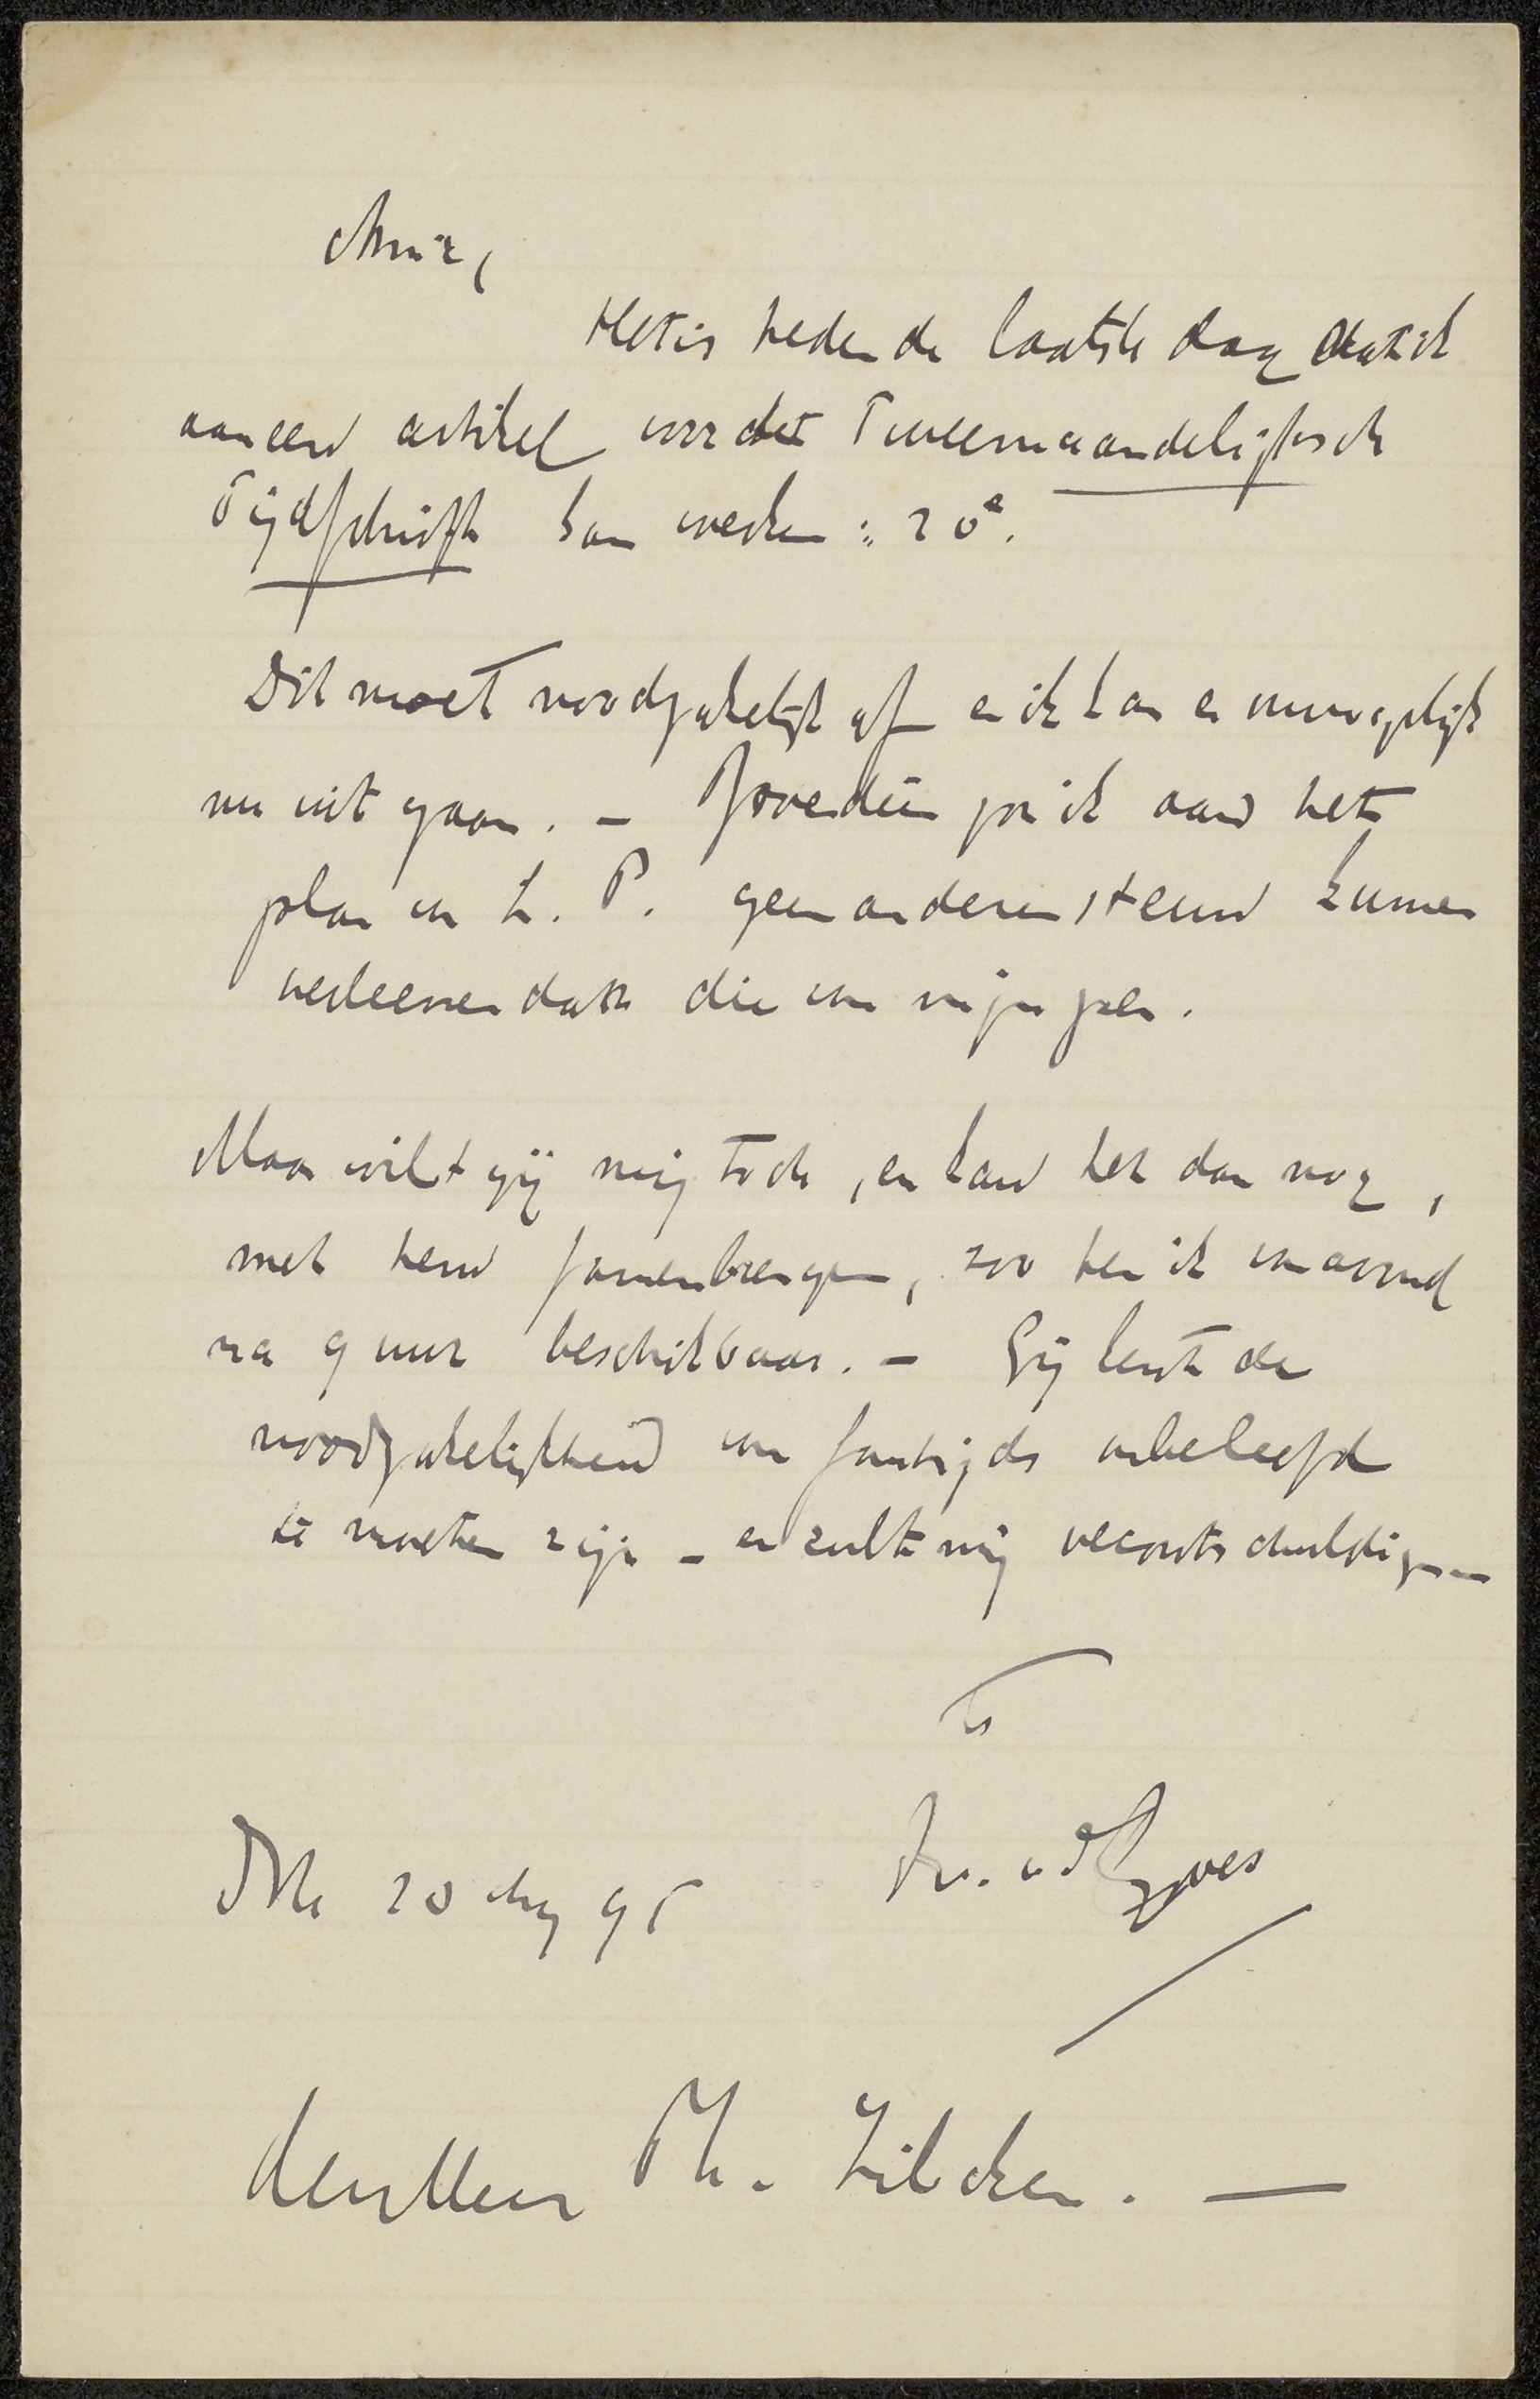 Amice,
Het is heden de laatste dag dat ik
aan een artikel voor het Tweemaandelijksch
Tijdschrift kan werken: 20e.
Dit moet noodzakelijk af en ik kan er onmogelijk
nu uit gaan. – Bovendien zou ik aan het
plan van h. P. geen anderen steun kunnen
verleenen dan die van mijn pen.
Maar wilt gij mij toch, en kan het dan nog,
met hem samenbrengen, zoo ben ik van avond
na 9 uur beschikbaar. – Gij kent de
noodzakelijkheid om somtijds onbeleefd
te moeten zijn – en zult mij verontschuldigen –
Ts
20 Aug 95
den Heer Ph. Zilcken. —